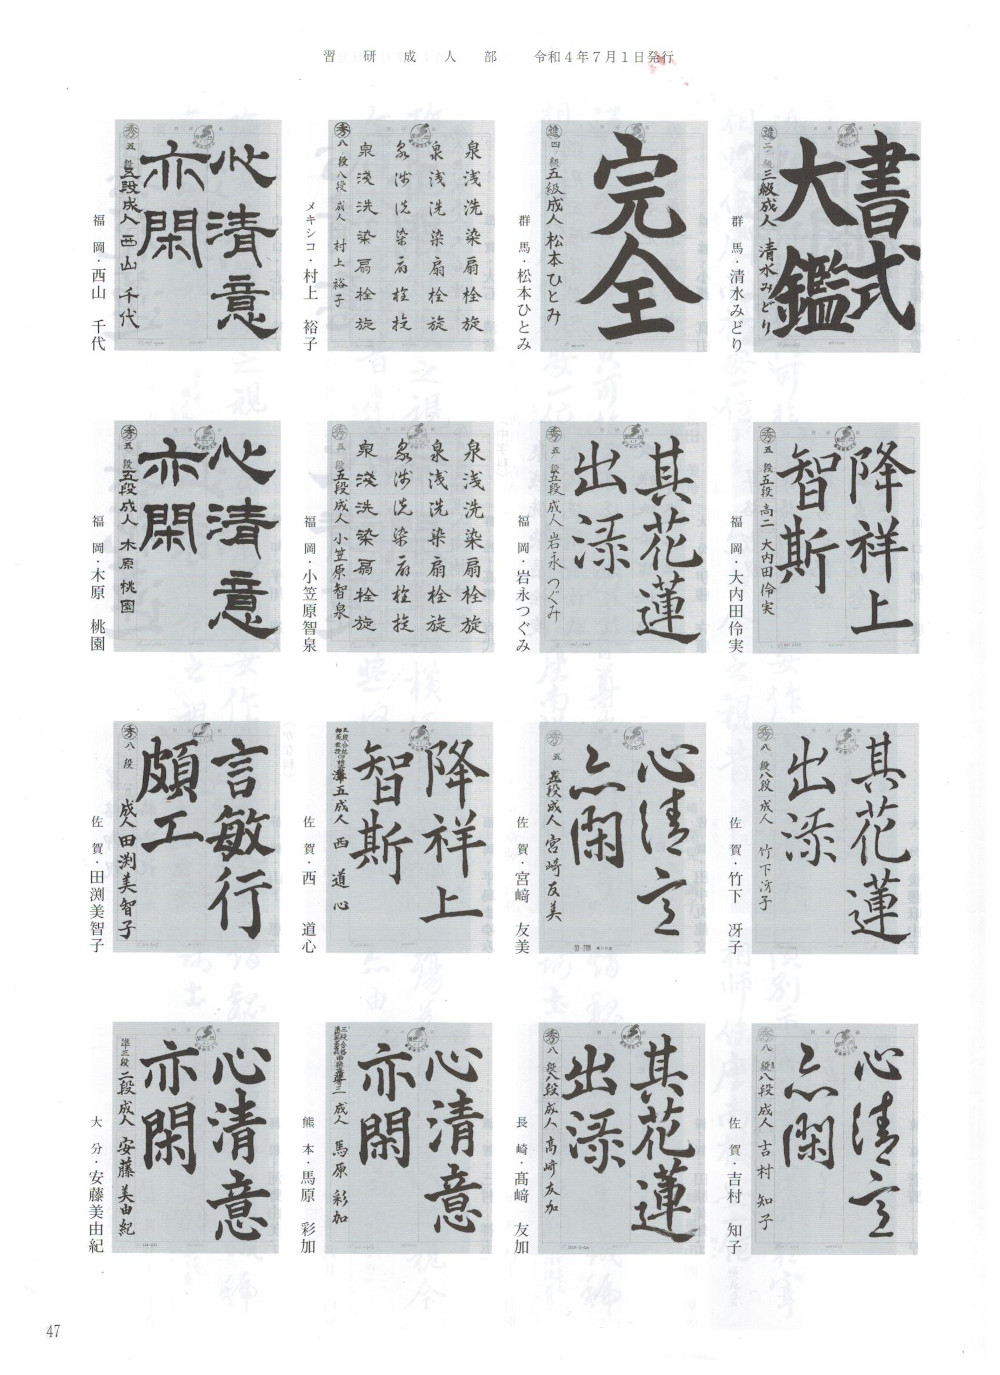 習研成人部 令和4年7月1日発行
書式
大鑑
三級成人 清水みどり
群馬・清水みどり
完全
五級成人 松本ひとみ
群馬・松本ひとみ
泉浅洗染扇栓旋
泉浅洗染扇栓旋
泉浅洗染扇栓旋
泉浅洗染扇栓旋
秀 八段 八段 成人 村上裕子
メキシコ・村上 裕子
心清意
亦閑
秀 五段 五段成人 西山千代
福岡・西山 千代
降祥上
智斯
秀 五段 五段 高二 大内田伶実
福岡・大内田伶実
其花蓮
出添
秀 五段 五段成人 岩永つぐみ
福岡・岩永つぐみ
泉浅洗染扇栓旋
泉浅洗染扇栓旋
泉浅洗染扇栓旋
泉浅洗染扇栓旋
秀 五段 五段成人 小笠原智泉
福岡・小笠原智泉
心清意
亦閑
秀 五段 五段成人 木原桃園
福岡・木原 桃園
其花蓮
出添
秀 八段 八段 成人 竹下冴子
佐賀・竹下 冴子
心清意
亦閑
秀 五段 五段成人 宮崎友美
佐賀・宮﨑 友美
降祥上
智斯
準五成人 西道心
佐賀・西 道心
言敏行
頗工
秀 八段 成人 田渕美智子
佐賀・田渕美智子
心清意
亦閑
秀 八段 八段成人 吉村知子
佐賀・吉村 知子
其花蓮
出添
秀 八段 八段成人 高崎友加
長崎・髙﨑 友加
心清意
亦閑
成人 馬原彩加
熊本・馬原 彩加
心清意
亦閑
準三段 二段成人 安藤美由紀
大分・安藤美由紀
47